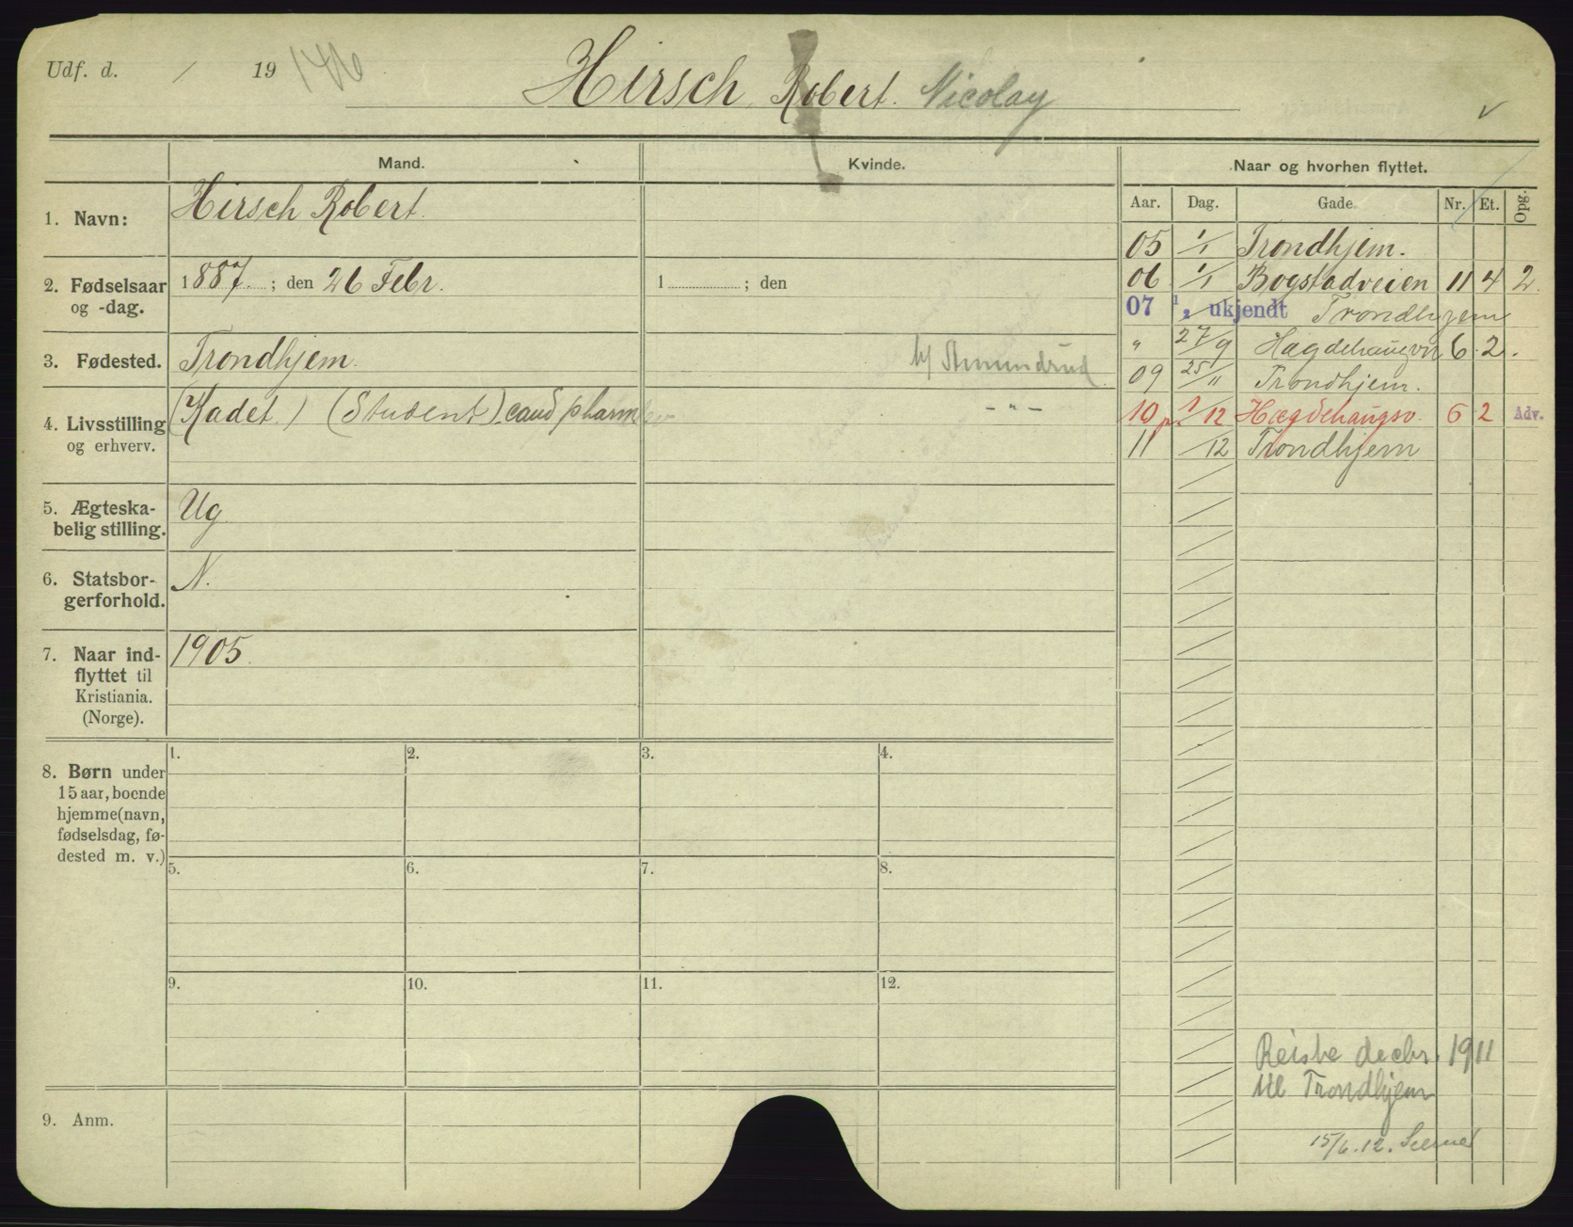 Udf. d. / 19 146
Hirsch Robert. Nicolay
Mand. Kvinde. Naar og hvorhen flyttet.
Aar. Dag. Gade Nr. Et. Opg.
1. Navn: Hirsch Robert.
2. Fødselsaar og -dag. 1887. ; den 26 Febr. 1 ; den
3. Fødested. Trondhjem. h/ Amundrud
4. Livsstilling og erhverv. (Kadet.) (Student) cand pharm - " -
5. Ægteska-
belig stilling. Ug
6. Statsbor-
gerforhold. N.
7. Naar ind-
flyttet til
Kristiania.
(Norge). 1905.
8. Børn under
15 aar, boende
hjemme (navn,
fødselsdag, fø-
dested m. v.)
1. 2. 3. 4.
5. 6. 7. 8.
9. 10. 11. 12.
9. Anm.
05 1/1 Trondhjem.
06 1/1 Bogstadveien 11 4 2.
07 1/2 ukjendt Trondhjem
" 27/9 Hægdehaugvn 6 2.
09 25/11 Trondhjem.
10 p. 1/12 Hægdehaugsv. 6 2 Adv.
11 /12 Trondhjem
Reiste decbr. 1911
til Trondhjem
15/6.12.